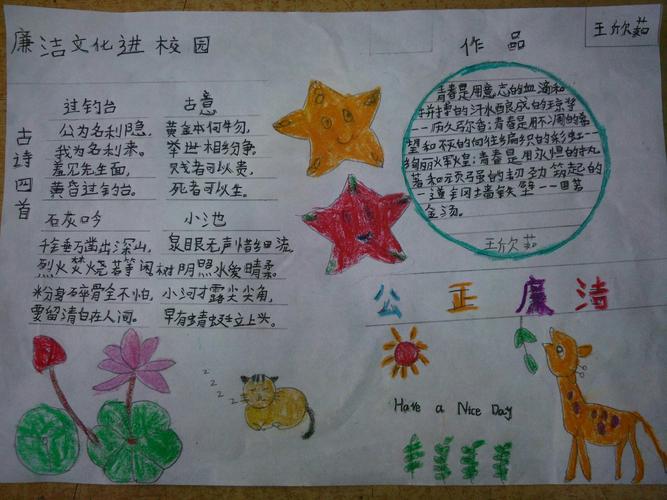 廉洁文化进校园
作品
王欣茹
古诗四首
过钓台
公为名利隐,
我为名利来。
羞见先生面,
黄昏过钓台。
古意
黄金本何物,
举世相纷争。
残者可以贵,
死者可以生。
石灰吟
千锤万凿出深山,
烈火焚烧若等闲
粉身碎骨全不怕,
要留清白在人间。
小池
泉眼无声惜细流,
树阴照水爱晴柔。
小河才露尖尖角,
早有蜻蜓立上头。
青春是用意志的血滴和
拼搏的汗水酿成的琼浆
--历久弥香;青春是用不凋的希
望和不灭的向往编织的彩虹--
绚丽辉煌;青春是用永恒的执
著和顽强的韧劲筑起的
一道铜墙铁壁--固若
金汤。
王欣茹
公正廉洁
Have a Nice Day
z z z